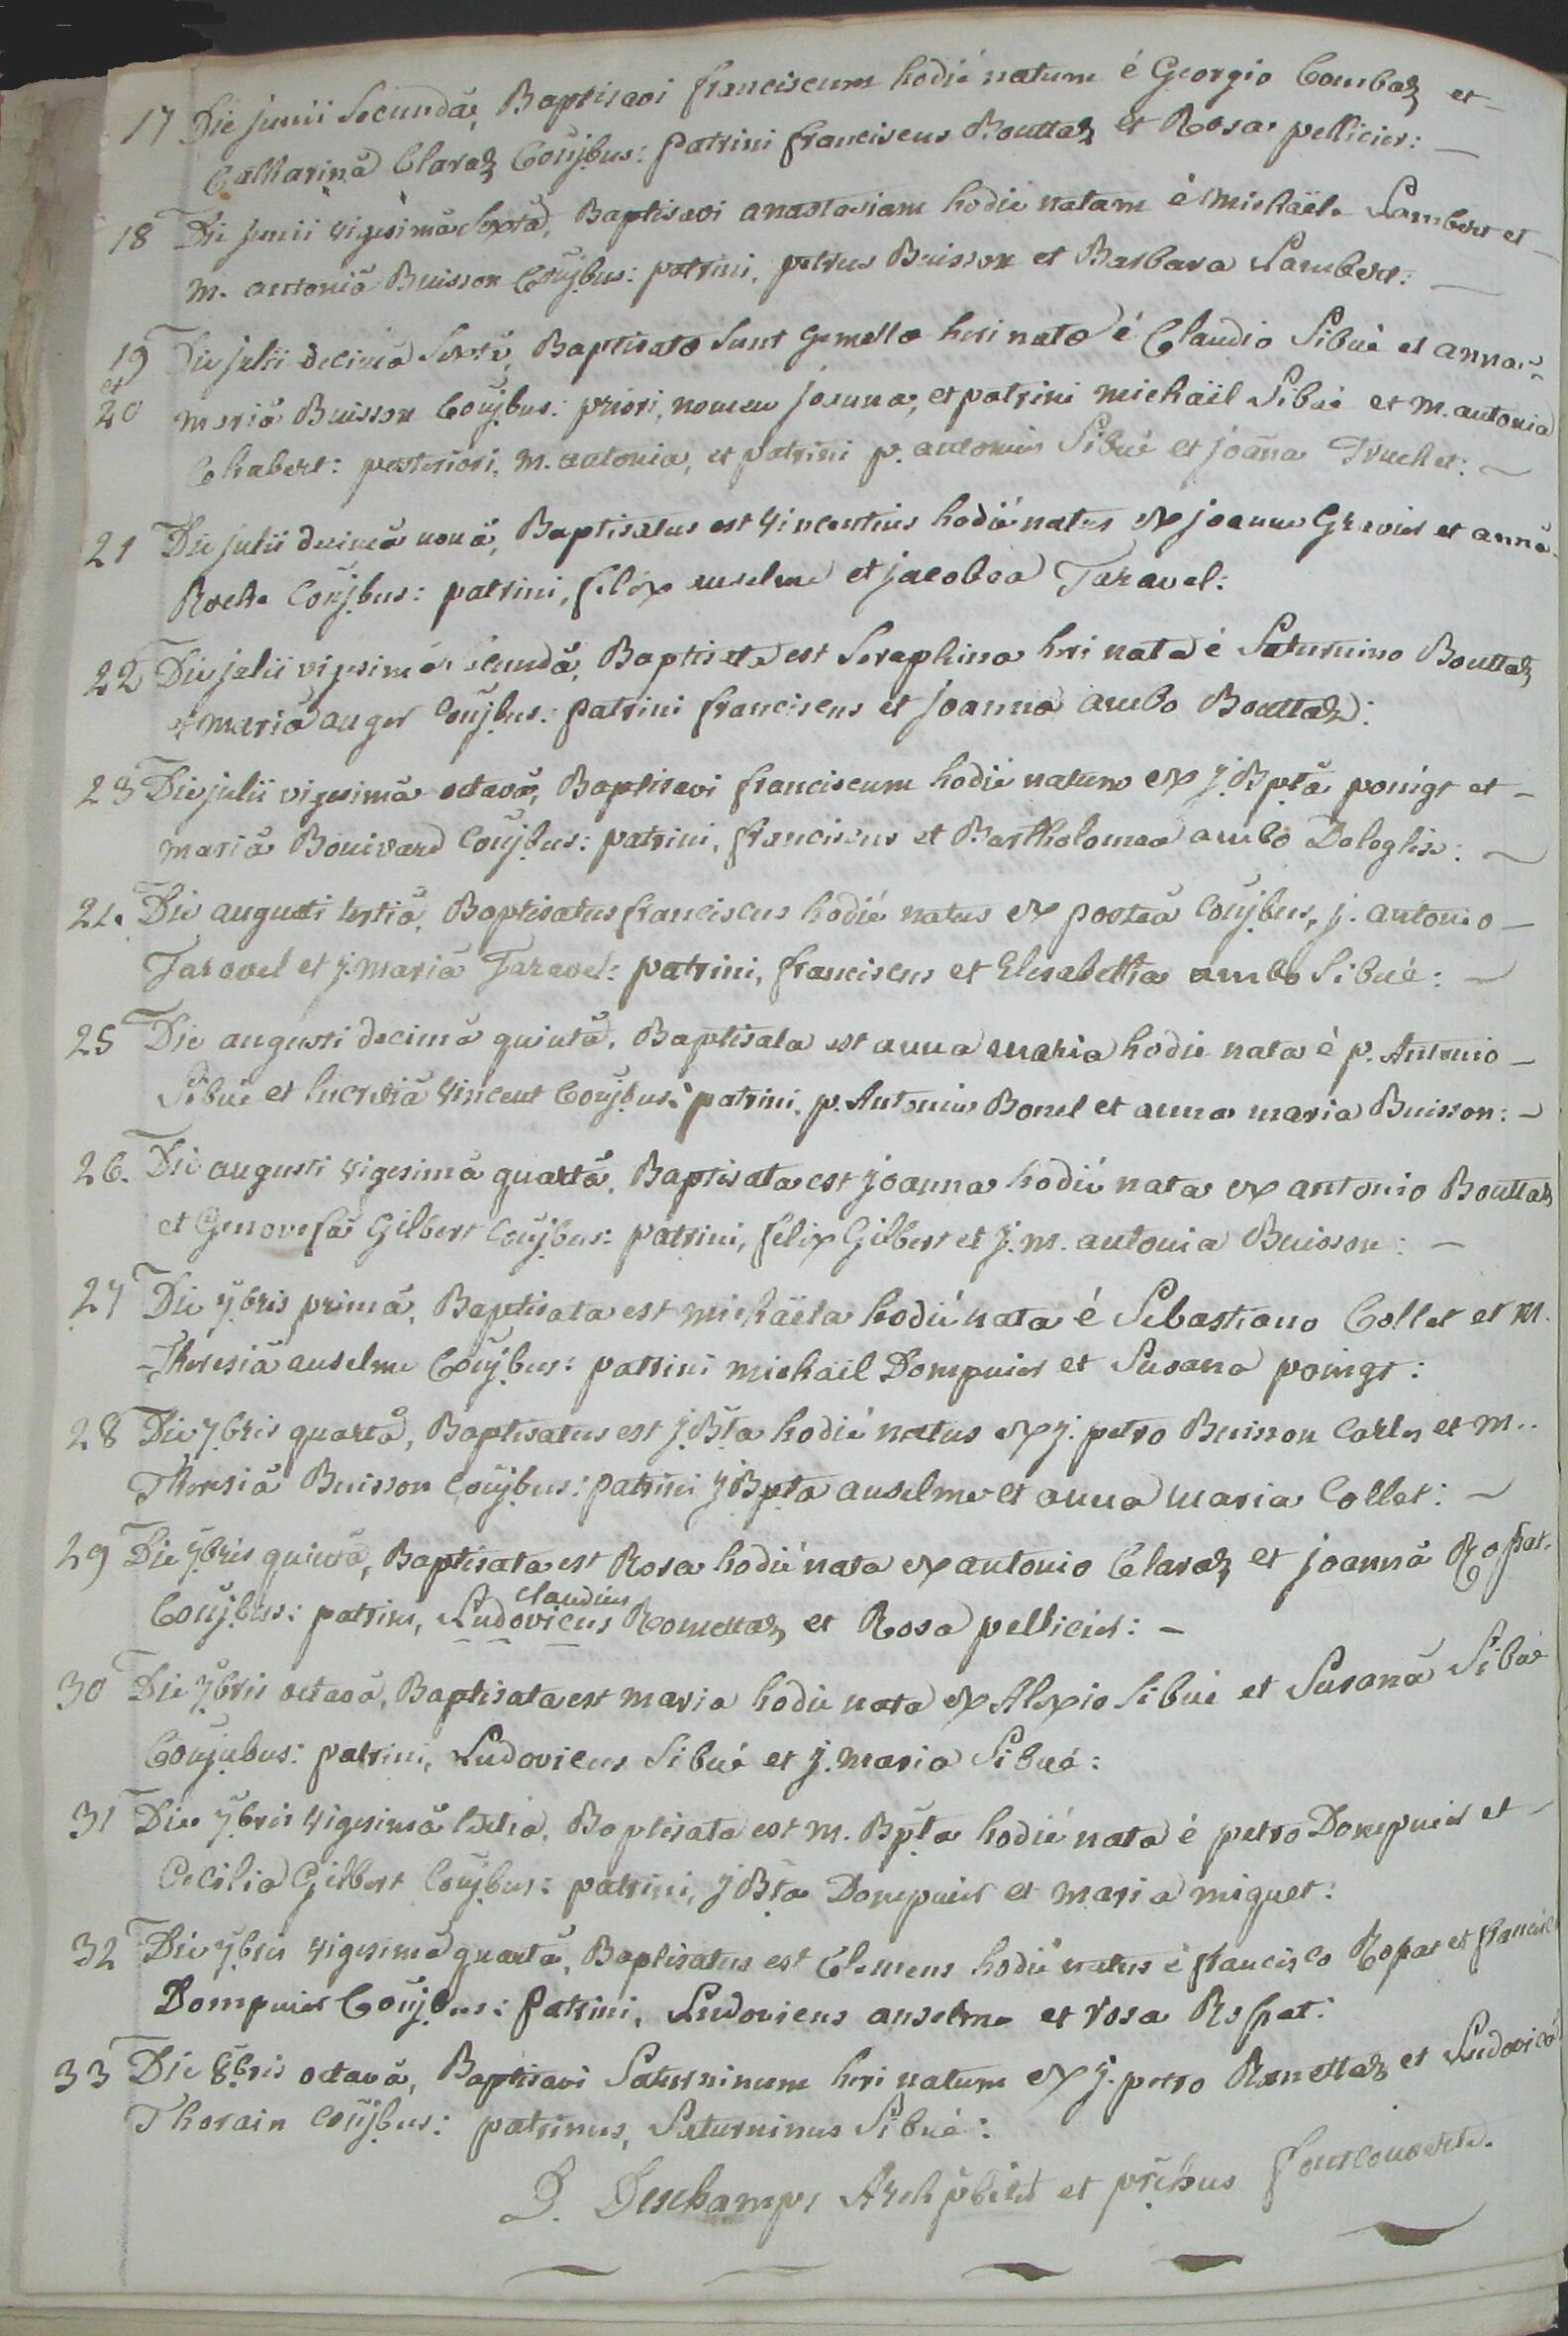 17 Die junii Secundâ, Baptisavi franciscum hodiè natum è Georgio Combaz et
Catharinâ Claraz Coñjbus: patrini franciscus Bouttaz et Rosa pellicier:
18 Die junii vigesimâ Sextâ, Baptisavi anastasiam hodiè natam è Michäele Lambert et
M. antoniâ Buisson Coñjbus: patrini, petrus Buisson et Barbara Lambert:
19 Die julii decimâ Sextâ, Baptisatæ Sunt gemellæ heri natæ è Claudio Sibué et annâ
et
20 mariâ Buisson Coñjbus: priori, nomen joanna, et patrini michäel Sibué et m. antonia
Chabert: posteriori, m. antonia, et patrini p. antonius Sibué et joãna Truchet:
21 Die julii decimâ nonâ, Baptisatus est Vincentius hodiè natus ex joanne Gravier et annâ
Roche Coñjbus: patrini, felix anselme et jacobea Taravel:
22 Die julii vigesimâ Secundâ, Baptisata est Seraphina heri nata è Saturnino Bouttaz
et mariâ auger Coñjbus: patrini franciscus et joanna ambo Bouttaz:
23 Die julii vigesimâ octavâ, Baptisavi franciscum hodiè natum ex j. Bptâ poingt et
mariâ Bouivard Coñjbus: patrini, franciscus et Bartholomea ambo Deleglise:
24. Die augusti tertiâ, Baptisatus franciscus hodiè natus ex posteâ Coñjbus, j. antonio
Taravel et j. mariâ Taravel: patrini, franciscus et Elisabetha ambo Sibué:
25 Die augusti decimâ quintâ, Baptisata est anna maria hodie nata è p. Antonio
Sibué et lucretiâ Vincent Coñjbus: patrini, p. Antonius Bonel et anna maria Buisson:
26. Die augusti vigesimâ quartâ, Baptisata est joanna hodiè nata ex antonio Bouttaz
et Genovefâ Gilbert Coñjbus: patrini, felix Gilbert et j. m. antonia Buisson:
27 Die 7bris primâ, Baptisata est michäela hodiè nata è Sebastiano Collet et M.
Theresiâ anselme Coñjbus: patrini michäel Dompnier et Susana poingt:
28 Die 7bris quartâ, Baptisatus est j. Bta hodiè natus ex j. petro Buisson Carlos et M.
Theresiâ Buisson Coñjbus: patrini j Bpta anselme et anna maria Collet:
29 Die 7bris quintâ, Baptisata est Rosa hodiè nata ex antonio Claraz et joannâ Rostat.
claudius
Coñjbus: patrini, Ludovicus Romettaz et Rosa pellicier:
30 Die 7bris octavâ, Baptisata est maria hodie nata ex Alexio Sibué et Susanâ Sibué
Conjubus: patrini, Ludovicus Sibué et j. maria Sibué:
31 Die 7bris Vigesimâ tertiâ, Baptisata est m. Bpta hodiè nata è petro Dompnier et
Ceciliâ Gilbert Coñjbus: patrini, j Bta Dompnier et maria miquet:
32 Die 7bris vigesimâ quartâ, Baptisatus est Clemens hodiè natus è francisco Rostat et francisc
Dompnier Coñjbus: patrini, Ludovicus anselme et rosa Rostat:
33 Die 8bris octavâ, Baptisavi Saturninum heri natum ex j. petro Ramettaz et Ludovicâ
Thorain Coñjbus: patrinus, Saturninus Sibué:
D. Deschamps Archpbiter et prchus